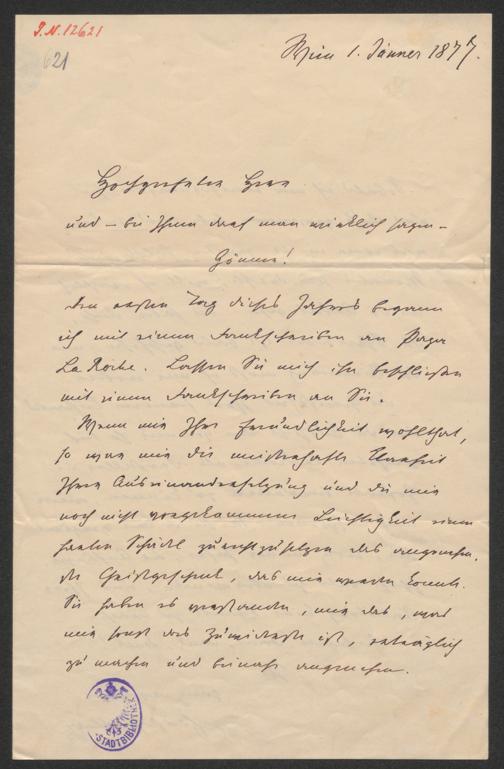 J.N. 12621
621
Wien 1. Jänner 1877.
Hochgeehrter Herr
und – bei Ihnen darf man wirklich sagen –
Gönner!
Den ersten Tag dieses Jahres begann
ich mit einem Dankschreiben an Papa
La Roche. Lassen Sie mich ihn beschließen
mit einem Dankschreiben an Sie.
Wenn mir Ihre Freundlichkeit wohlthat,
so war mir die meisterhafte Klarheit
Ihrer Auseinandersetzung und die mir
noch nicht vorgekommene Leichtigkeit einem
harten Schädel zurechtzusetzen das angenehm-
ste Geistgeschenk, das mir werden konnte.
Sie haben es verstanden, mir das, was
mir sonst das Zuwiderste ist, erträglich
zu machen und beinahe angenehm.
STADTBIBLIOTHEK